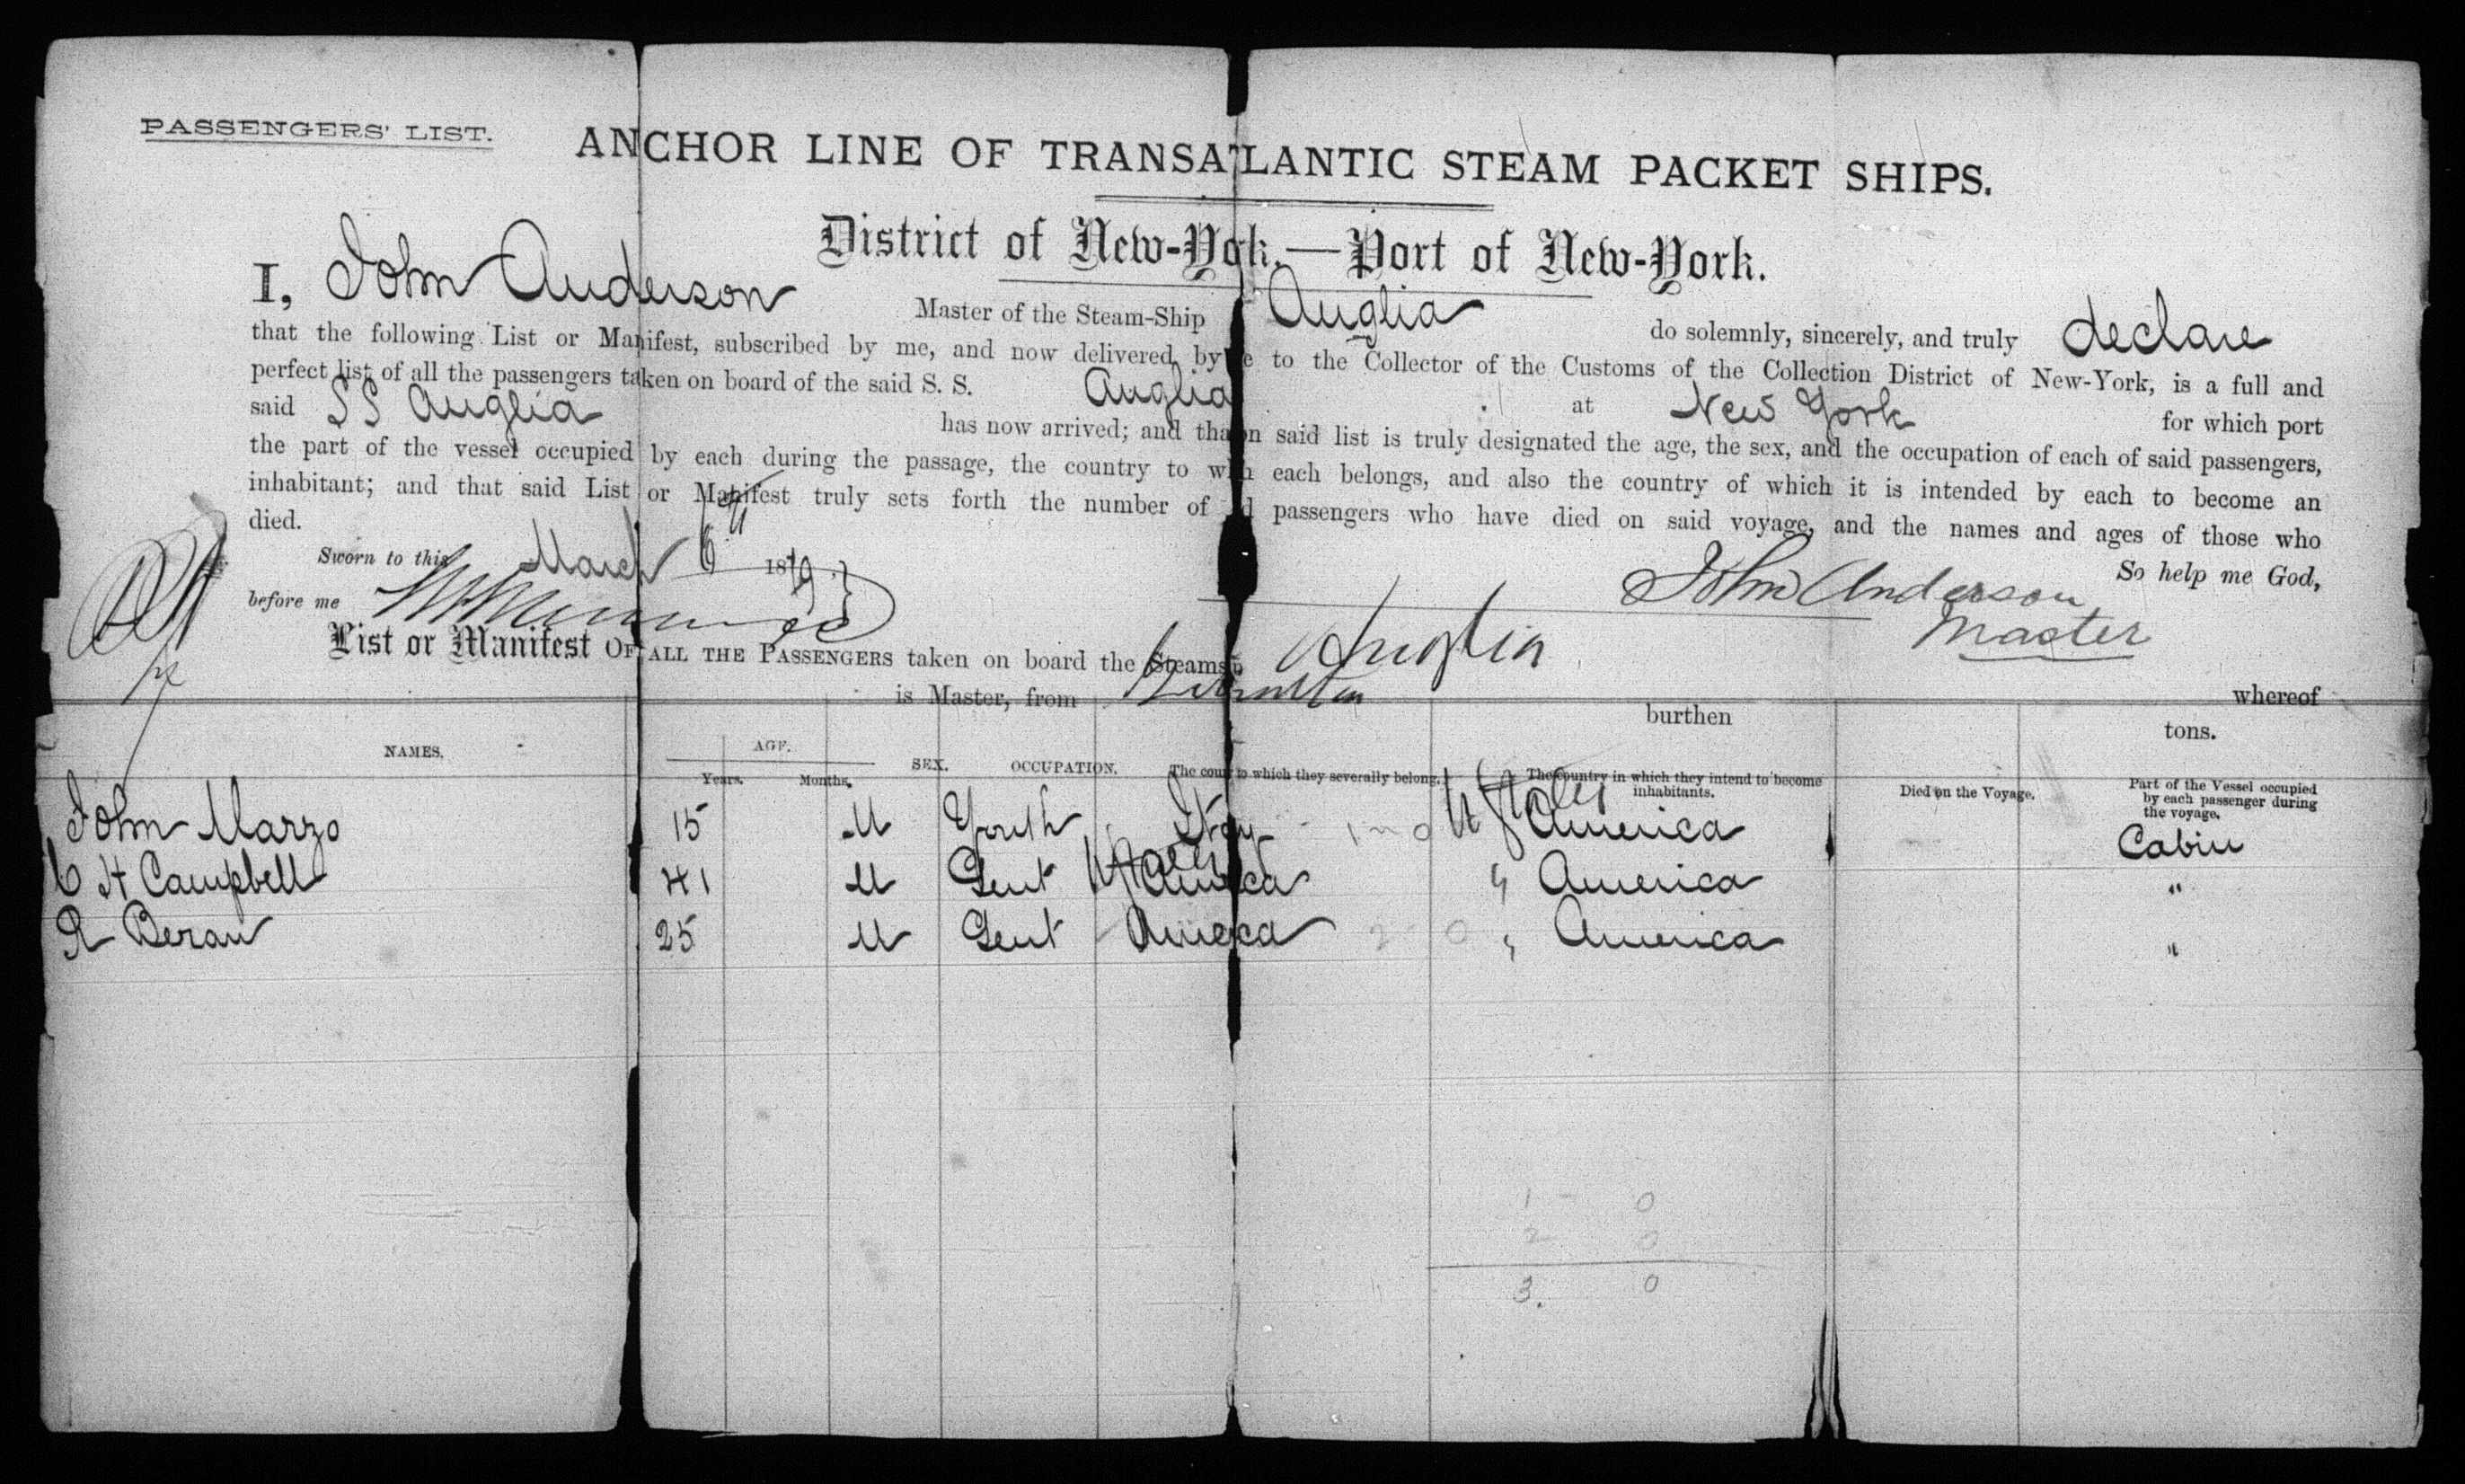 PASSENGERS' LIST.
ANCHOR LINE OF TRANSATLANTIC STEAM PACKET SHIPS.
District of New-Yok.—Port of New-York.
I, John Anderson Master of the Steam-Ship Anglia do solemnly, sincerely, and truly declare
that the following List or Manifest, subscribed by me, and now delivered by e to the Collector of the Customs of the Collection District of New-York, is a full and
perfect list of all the passengers taken on board of the said S. S. Anglia at New York for which port
said SS Anglia has now arrived; and tha on said list is truly designated the age, the sex, and the occupation of each of said passengers,
the part of the vessel occupied by each during the passage, the country to wh h each belongs, and also the country of which it is intended by each to become an
inhabitant; and that said List or Manifest truly sets forth the number of d passengers who have died on said voyage, and the names and ages of those who
died.
So help me God,
Sworn to this March 6th 1879
John Anderson
before me
Master
List or Manifest OF ALL THE PASSENGERS taken on board the Steams Anglia whereof
is Master, from burthen tons.
NAMES. AGE. Years. Months. SEX. OCCUPATION. The coun to which they severally belong. The country in which they intend to become inhabitants. Died on the Voyage. Part of the Vessel occupied by each passenger during the voyage.
John Marzo 15 M Youth Italy 1 0 U States America Cabin
C H Campbell 41 M Gent U States America " America "
R Beran 25 M Gent America 2 0 " America "
1 0
2 0
3. 0